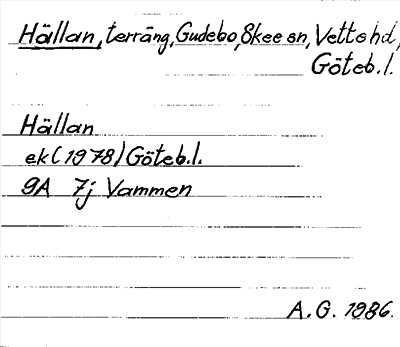 Hällan, terräng, Gudebo, Skee sn, Vette hd,
Göteb.l.
Hällan
ek (1978) Göteb.l.
9A 7j Vammen
A.G. 1986.